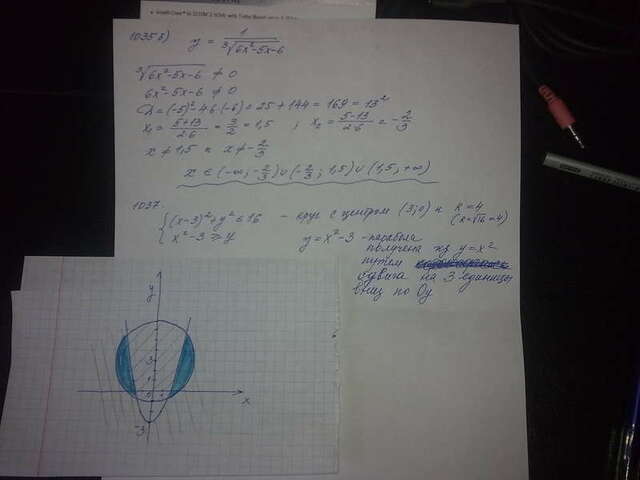 1035 б) y = 1/∛(6x²-5x-6)
∛(6x²-5x-6) ≠ 0
6x²-5x-6 ≠ 0
D = (-5)²-4·6·(-6) = 25 + 144 = 169 = 13²
x₁ = (5+13)/(2·6) = 3/2 = 1,5 ; x₂ = (5-13)/(2·6) = -2/3
x ≠ 1,5 и x ≠ -2/3
x ∈ (-∞; -2/3) ∪ (-2/3; 1,5) ∪ (1,5; +∞)
1037.
{ (x-3)²+y² ≤ 16 - круг с центром (3;0) и R = 4
(R=√16=4)
x²-3 ≥ y
y = x²-3 - парабола
получена из y = x²
путем
сдвига на 3 единицы
вниз по Oy
y
3
1
1
x
-3